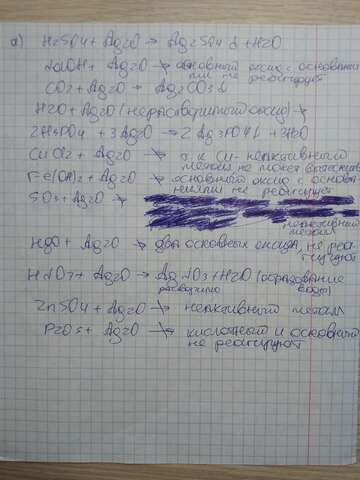 а) H2SO4 + Ag2O → Ag2SO4↓ + H2O
NaOH + Ag2O ↛ основный оксид с основани
ями не реагирует
CO2 + Ag2O → Ag2CO3↓
H2O + Ag2O (нерастворимый оксид) ↛
2H3PO4 + 3Ag2O → 2Ag3PO4↓ + 3H2O
CuCl2 + Ag2O ↛ т.к Cu- неактивный
металл не может
Fe(OH)2 + Ag2O ↛ основный оксид с основа
ниями не реагирует
SO3 + Ag2O ↛
неактивный
металл
HgO + Ag2O ↛ два основных оксида, не реа-
гируют
HNO3 + Ag2O → AgNO3 + H2O (образование
растворимо воды)
ZnSO4 + Ag2O ↛ неактивный металл
P2O5 + Ag2O ↛ кислотный и основный
не реагируют